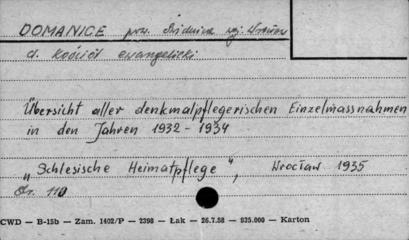 DOMANICE pow. Świdnica woj. Wrocław
d. kościół ewangelicki
Übersicht aller denkmalpflegerischen Einzelmassnahmen
in den Jahren 1932 - 1934
„Schlesische Heimatpflege“, Wrocław 1935
Str. 110
CWD — B-15b — Zam. 1402/P — 2398 — Łak — 26.7.58 — 935.000 — Karton